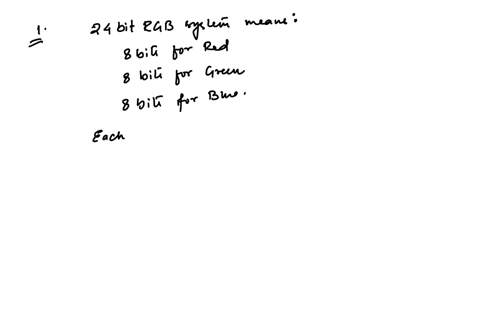 1. 24 bit RGB system means:
8 bits for Red
8 bits for Green
8 bits for Blue.
Each